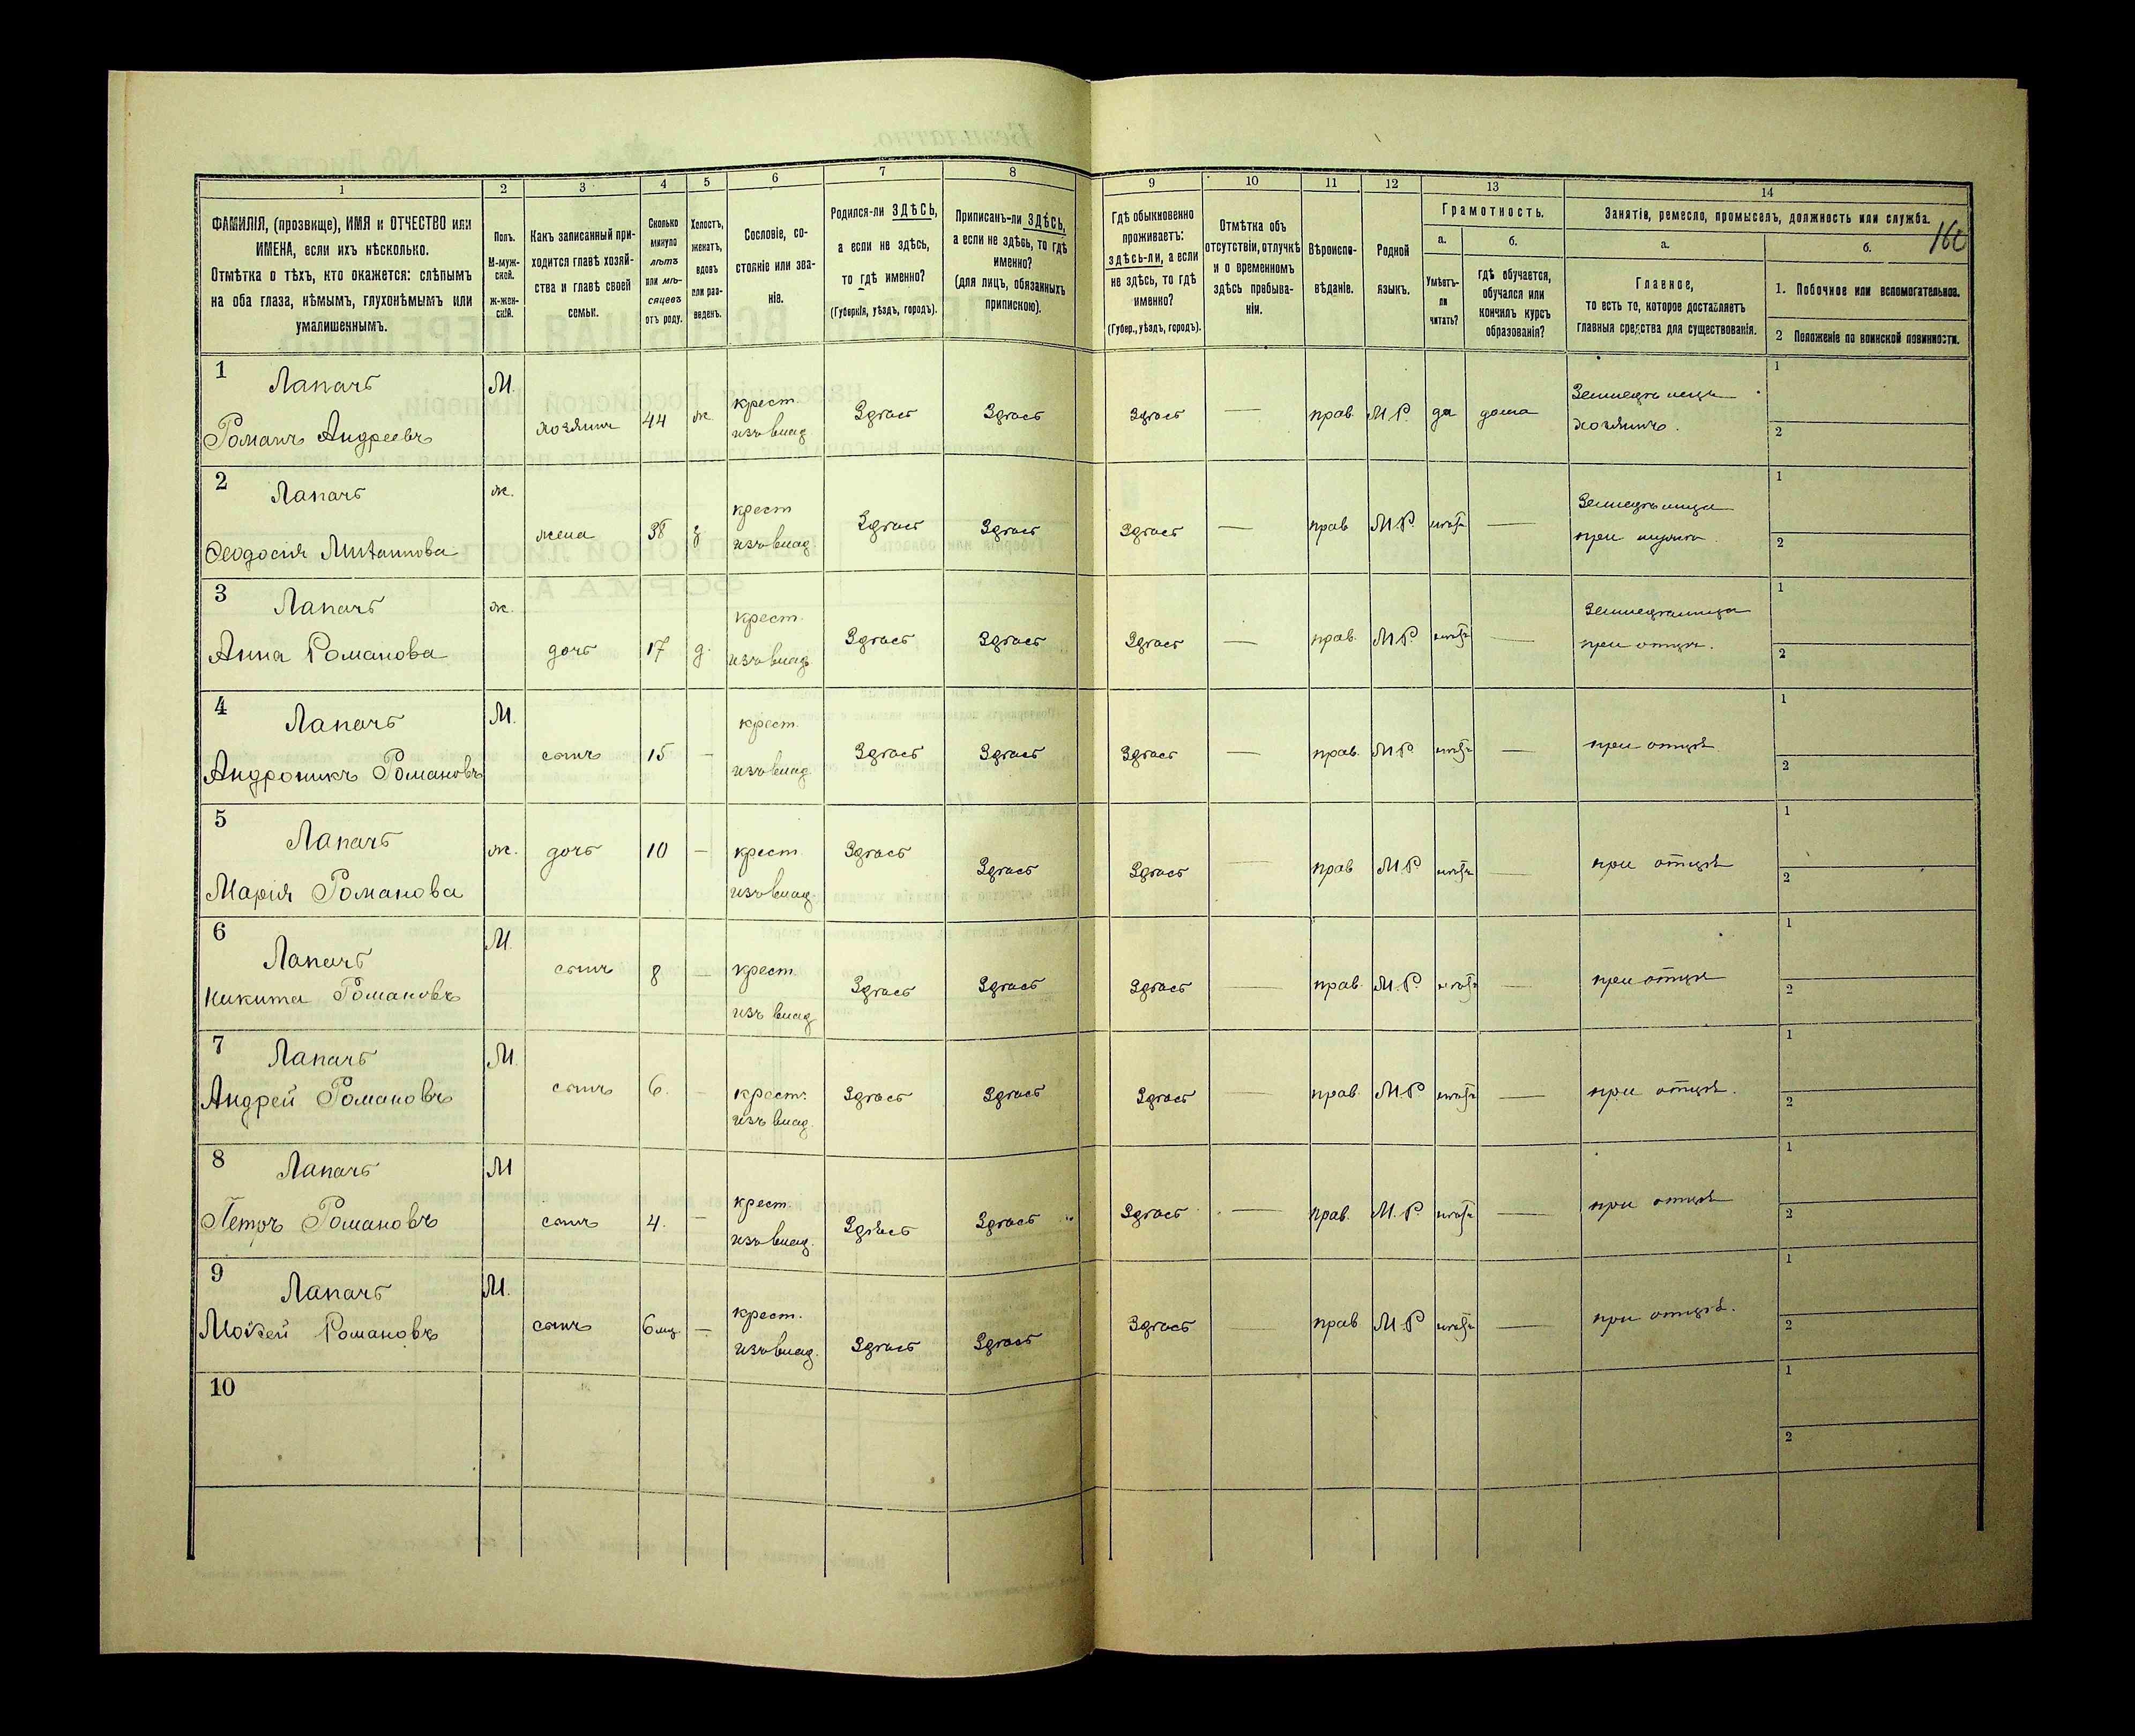 160
1 2 3 4 5 6 7 8 9 10 11 12 13 14
ФАМИЛІЯ, (прозвище), ИМЯ и ОТЧЕСТВО или
ИМЕНА, если ихъ нѣсколько.
Отмѣтка о тѣхъ, кто окажется: слѣпымъ
на оба глаза, нѣмымъ, глухонѣмымъ или
умалишеннымъ.
Полъ.
М-муж-
ской.
Ж-жен-
скій.
Какъ записанный при-
ходится главѣ хозяй-
ства и главѣ своей
семьи.
Сколько
минуло
лѣтъ
или мѣ-
сяцевъ
отъ роду.
Холостъ,
женатъ,
вдовъ
или раз-
веденъ.
Сословіе, со-
стояніе или зва-
ніе.
Родился-ли ЗДѢСЬ,
а если не здѣсь,
то гдѣ именно?
(Губернія, уѣздъ, городъ).
Приписанъ-ли ЗДѢСЬ,
а если не здѣсь, то гдѣ
именно?
(для лицъ, обязанныхъ
припискою).
Гдѣ обыкновенно
проживаетъ:
здѣсь-ли, а если
не здѣсь, то гдѣ
именно?
(Губер., уѣздъ, городъ).
Отмѣтка объ
отсутствіи, отлучкѣ
и о временномъ
здѣсь пребыва-
ніи.
Вѣроиспо-
вѣданіе.
Родной
языкъ.
Грамотность.
а.
Умѣетъ-
ли
читать?
б.
гдѣ обучается,
обучался или
кончилъ курсъ
образованія?
Занятіе, ремесло, промыселъ, должность или служба.
а.
Главное,
то есть то, которое доставляетъ
главныя средства для существованія.
б.
1. Побочное или вспомогательное.
2 Положеніе по воинской повинности.
1 Лапачъ М. крест. Земледѣлецъ 1
Романъ Андреевъ хозяинъ 44 ж. изъ влад. Здѣсь Здѣсь Здѣсь — прав. М.Р. да дома хозяинъ. 2
2 Лапачъ ж. крест Земледѣлица 1
Ѳеодосія жена 38 з изъ влад. Здѣсь Здѣсь Здѣсь — прав М.Р. нѣтъ — при мужѣ 2
3 Лапачъ ж. крест. Земледѣлица 1
Анна Романова дочь 17 д. изъ влад. Здѣсь Здѣсь Здѣсь — прав. М.Р. нѣтъ — при отцѣ. 2
4 Лапачъ М. крест. 1
Андроникъ Романовъ сынъ 15 — изъ влад. Здѣсь Здѣсь Здѣсь — прав. М.Р. нѣтъ — при отцѣ 2
5 Лапачъ ж. дочь 10 — крест. Здѣсь 1
Марія Романова изъ влад. Здѣсь Здѣсь — прав М.Р нѣтъ — при отцѣ 2
6 Лапачъ М. сынъ 8 — крест. 1
Никита Романовъ изъ влад Здѣсь Здѣсь Здѣсь — прав. М.Р. нѣтъ — при отцѣ 2
7 Лапачъ М. 1
Андрей Романовъ сынъ 6. — крест. изъ влад. Здѣсь Здѣсь Здѣсь — прав. М.Р нѣтъ — при отцѣ. 2
8 Лапачъ М крест 1
Петръ Романовъ сынъ 4. — изъ влад. Здѣсь Здѣсь Здѣсь — прав. М.Р. нѣтъ — при отцѣ 2
9 Лапачъ М. крест. 1
Моисей Романовъ сынъ 6 мц. — изъ влад. Здѣсь Здѣсь Здѣсь — прав М.Р нѣтъ — при отцѣ. 2
10 1
2